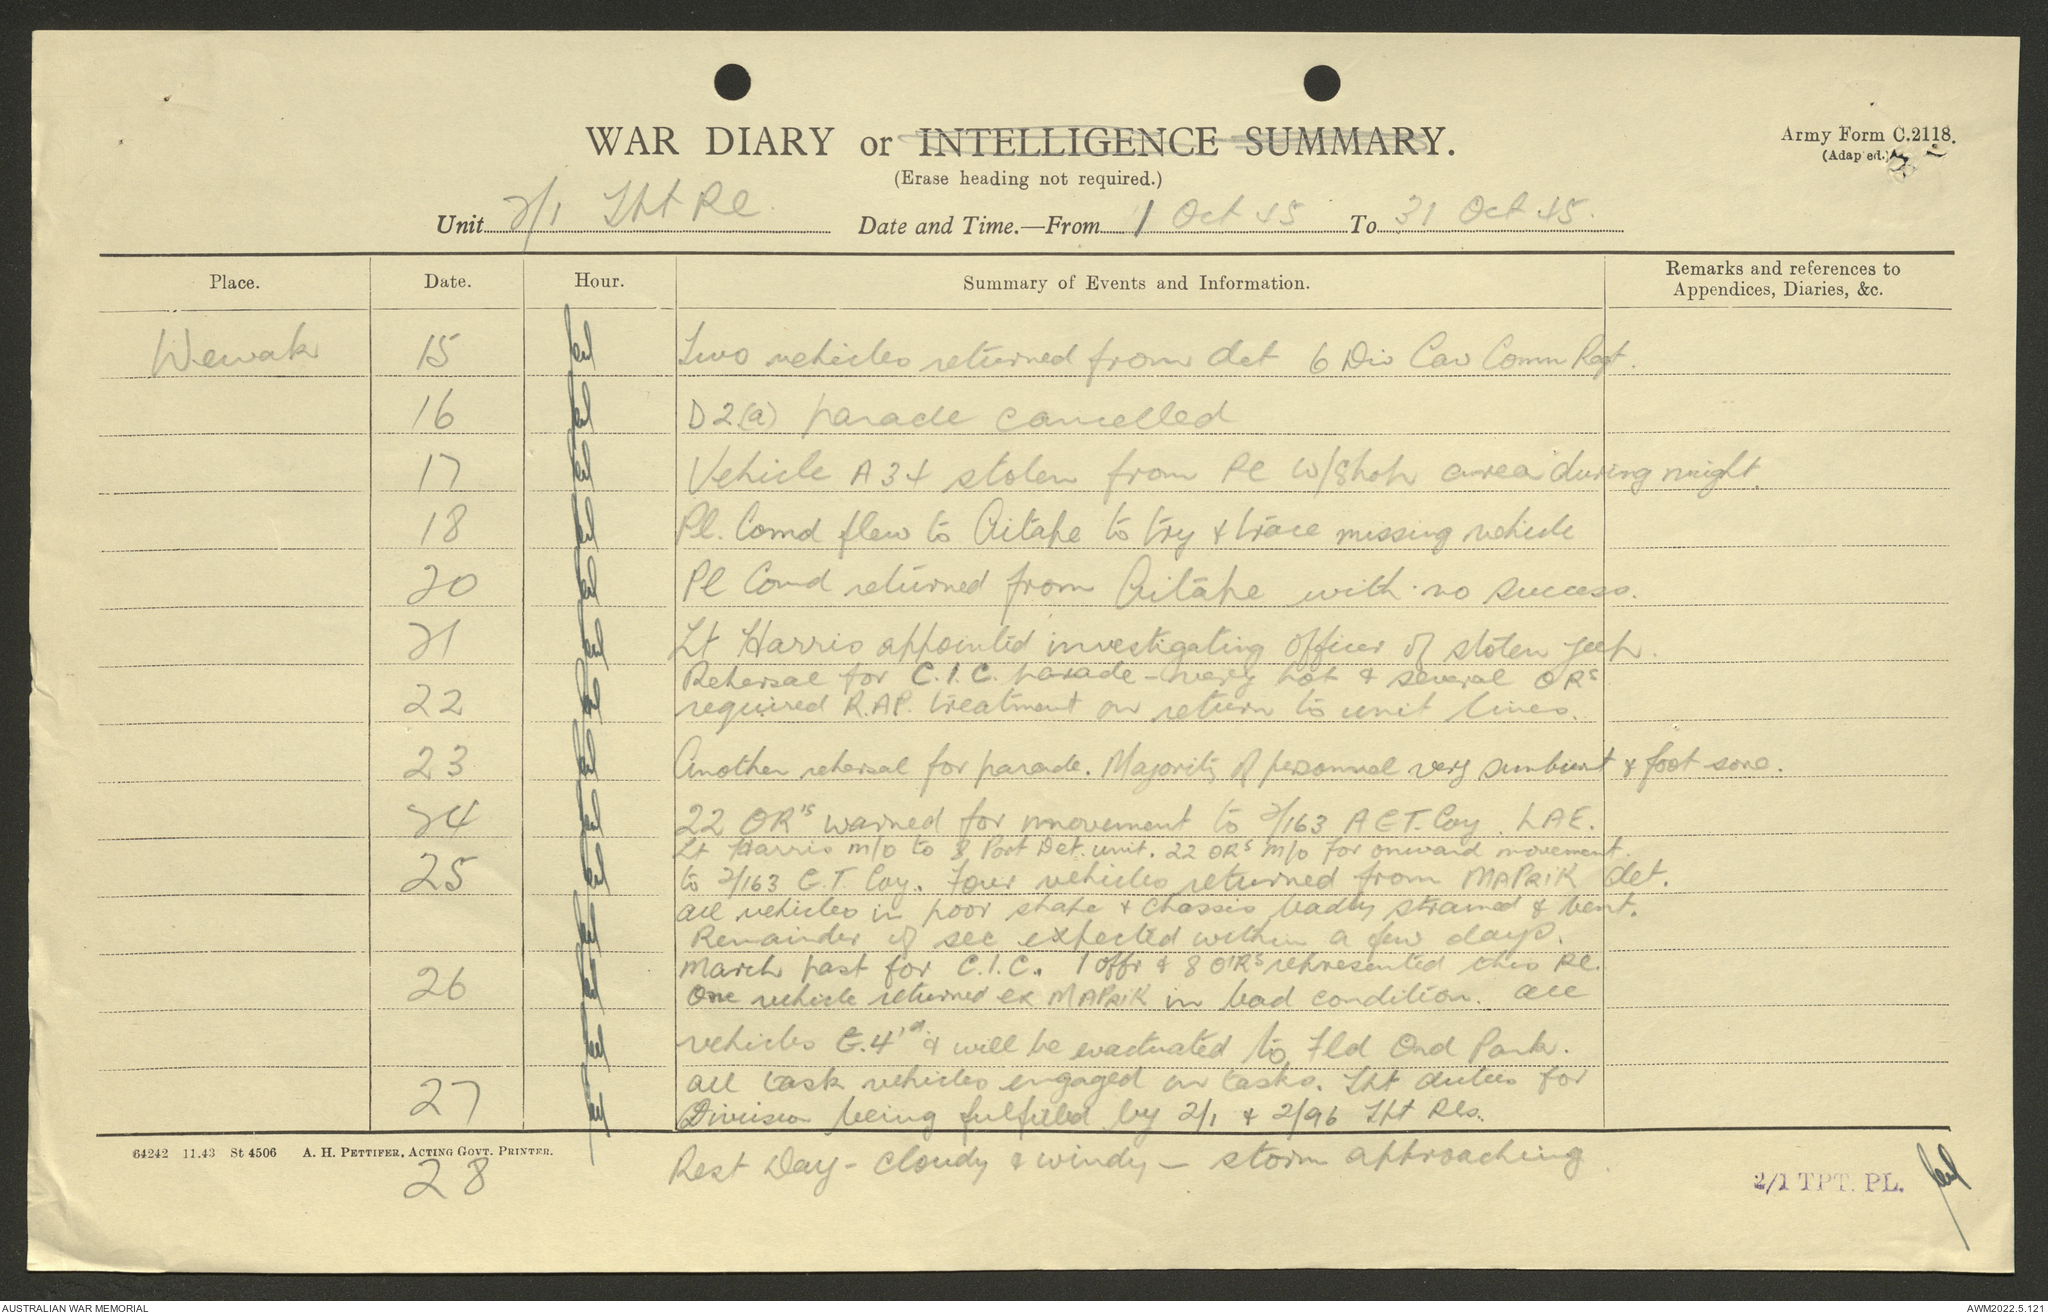 WAR DIARY or INTELLIGENCE SUMMARY.
Army Form C.2118.
(Adapted.)
(Erase heading not required.)
Unit 2/1 Tpt Pl. Date and Time.—From 1 Oct 45 To 31 Oct 45.
Place. Date. Hour. Summary of Events and Information. Remarks and references to Appendices, Diaries, &c.
Wewak 15 Two vehicles returned from det 6 Div Cav Comm Regt.
16 D2(a) parade cancelled
17 Vehicle A34 stolen from Pl W/Shop area during night.
18 Pl. Comd flew to Aitape to try & trace missing vehicle
20 Pl Comd returned from Aitape with no success.
21 Lt Harris appointed investigating officer of stolen jeep.
Rehersal for C.I.C. parade - very hot & several ORs
22 required R.A.P. treatment on return to unit lines.
23 Another rehersal for parade. Majority of personnel very sunburnt & foot sore.
24 22 OR's warned for movement to 2/163 A G.T. Coy. LAE.
Lt Harris m/o to 8 Port Det. unit. 22 ORs m/o for onward movement.
25 to 2/163 G.T Coy. Four vehicles returned from MAPRIK det.
All vehicles in poor shape & chassis badly strained & bent.
Remainder of sec expected within a few days.
March past for C.I.C. 1 offr & 8 O'Rs represented this Pl.
26 One vehicle returned ex MAPRIK in bad condition. All
vehicles E.4'd & will be evactuated to Fld Ord Park.
All task vehicles engaged on tasks. Tpt duties for
27 Division being fulfilled by 2/1 & 2/96 Tpt Pls.
64242 11.43 St 4506 A. H. PETTIFER, ACTING GOVT. PRINTER.
28 Rest Day - cloudy & windy - storm approaching.
2/1 TPT. PL.
AUSTRALIAN WAR MEMORIAL
AWM2022.5.121